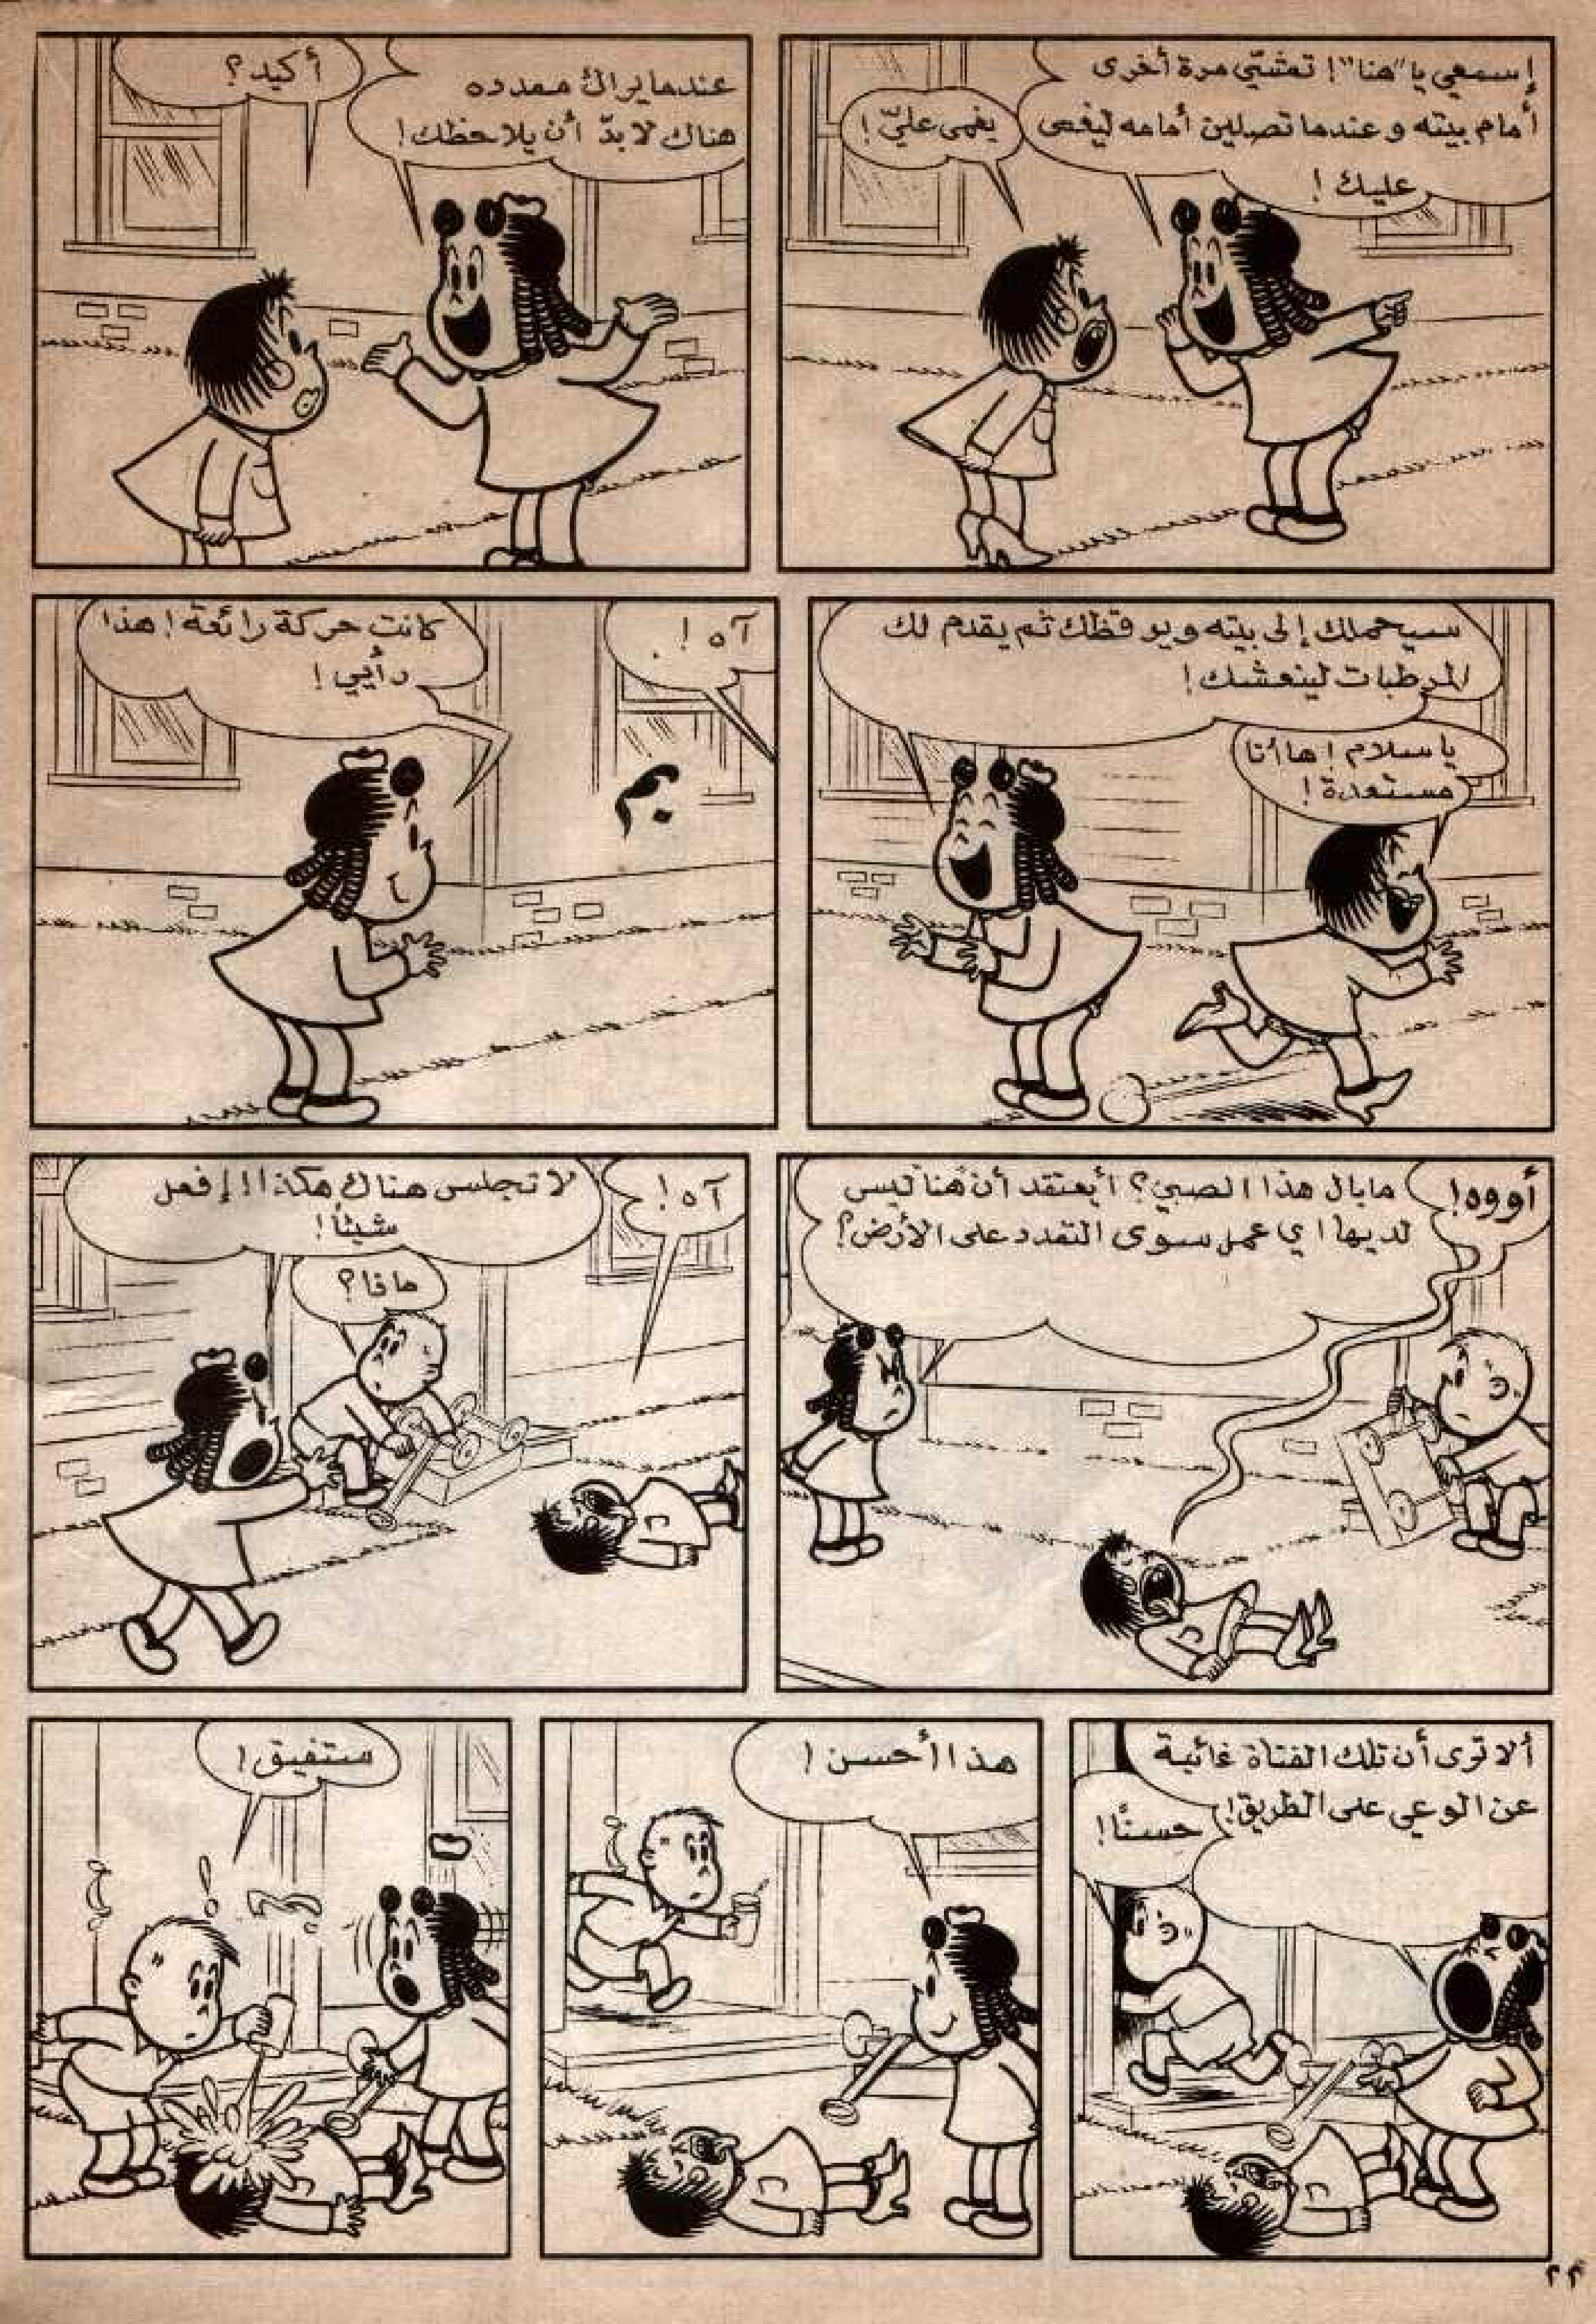 إسمعي يا "هنا"! تمشّي مرة أخرى
أمام بيته وعندما تصلين أمامه ليغمى
عليك!
يغمى عليّ!
عندما يراك ممدده
هناك لا بدّ أن يلاحظك!
أكيد؟
سيحملك إلى بيته ويوقظك ثم يقدم لك
المرطبات لينعشك!
يا سلام! ها أنا
مستعدة!
آه!
كانت حركة رائعة! هذا
رأيي!
أووه!
ما بال هذا الصبي؟ أيعتقد أن هنا ليس
لديها اي عمل سوى التمدد على الأرض؟
آه!
لا تجلس هناك هكذا! إفعل
شيئاً!
ماذا؟
ألا ترى أن تلك الفتاة غائبة
عن الوعي على الطريق!
حسناً!
هذا أحسن!
ستفيق!
٢٢